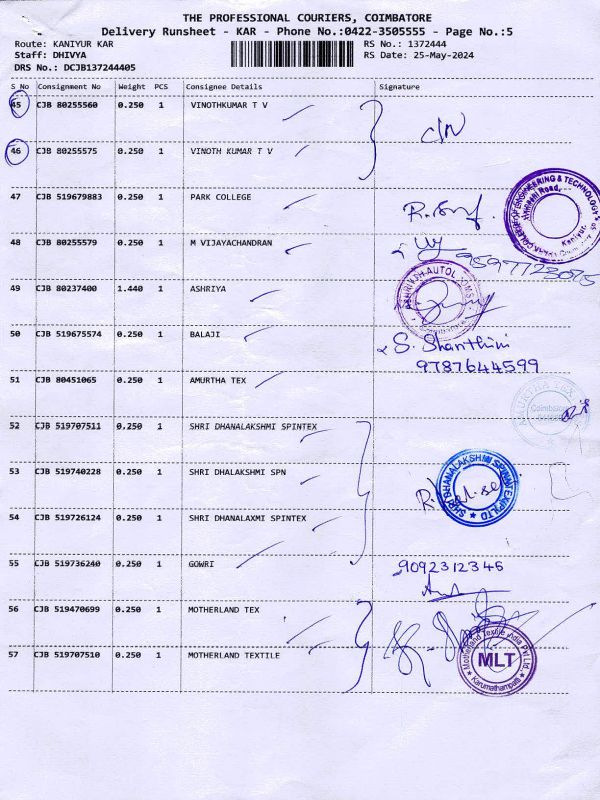 THE PROFESSIONAL COURIERS, COIMBATORE
Delivery Runsheet - KAR - Phone No.:0422-3505555 - Page No.:5
Route: KANIYUR KAR RS No.: 1372444
Staff: DHIVYA RS Date: 25-May-2024
DRS No.: DCJB137244405
S No Consignment No Weight PCS Consignee Details Signature
45 CJB 80255560 0.250 1 VINOTHKUMAR T V
46 CJB 80255575 0.250 1 VINOTH KUMAR T V
47 CJB 519679883 0.250 1 PARK COLLEGE
48 CJB 80255579 0.250 1 M VIJAYACHANDRAN
49 CJB 80237400 1.440 1 ASHRIYA
50 CJB 519675574 0.250 1 BALAJI S. Shanthini
9787644599
51 CJB 80451065 0.250 1 AMURTHA TEX
AMURTHA TEX
52 CJB 519707511 0.250 1 SHRI DHANALAKSHMI SPINTEX
53 CJB 519740228 0.250 1 SHRI DHALAKSHMI SPN
SHRI DHANALAKSHMI SPINTEX (P) LTD
54 CJB 519726124 0.250 1 SHRI DHANALAXMI SPINTEX
55 CJB 519736240 0.250 1 GOWRI 9092312346
56 CJB 519470699 0.250 1 MOTHERLAND TEX
57 CJB 519707510 0.250 1 MOTHERLAND TEXTILE
Motherland Textile India Pvt Ltd.
MLT
Karumathampatti